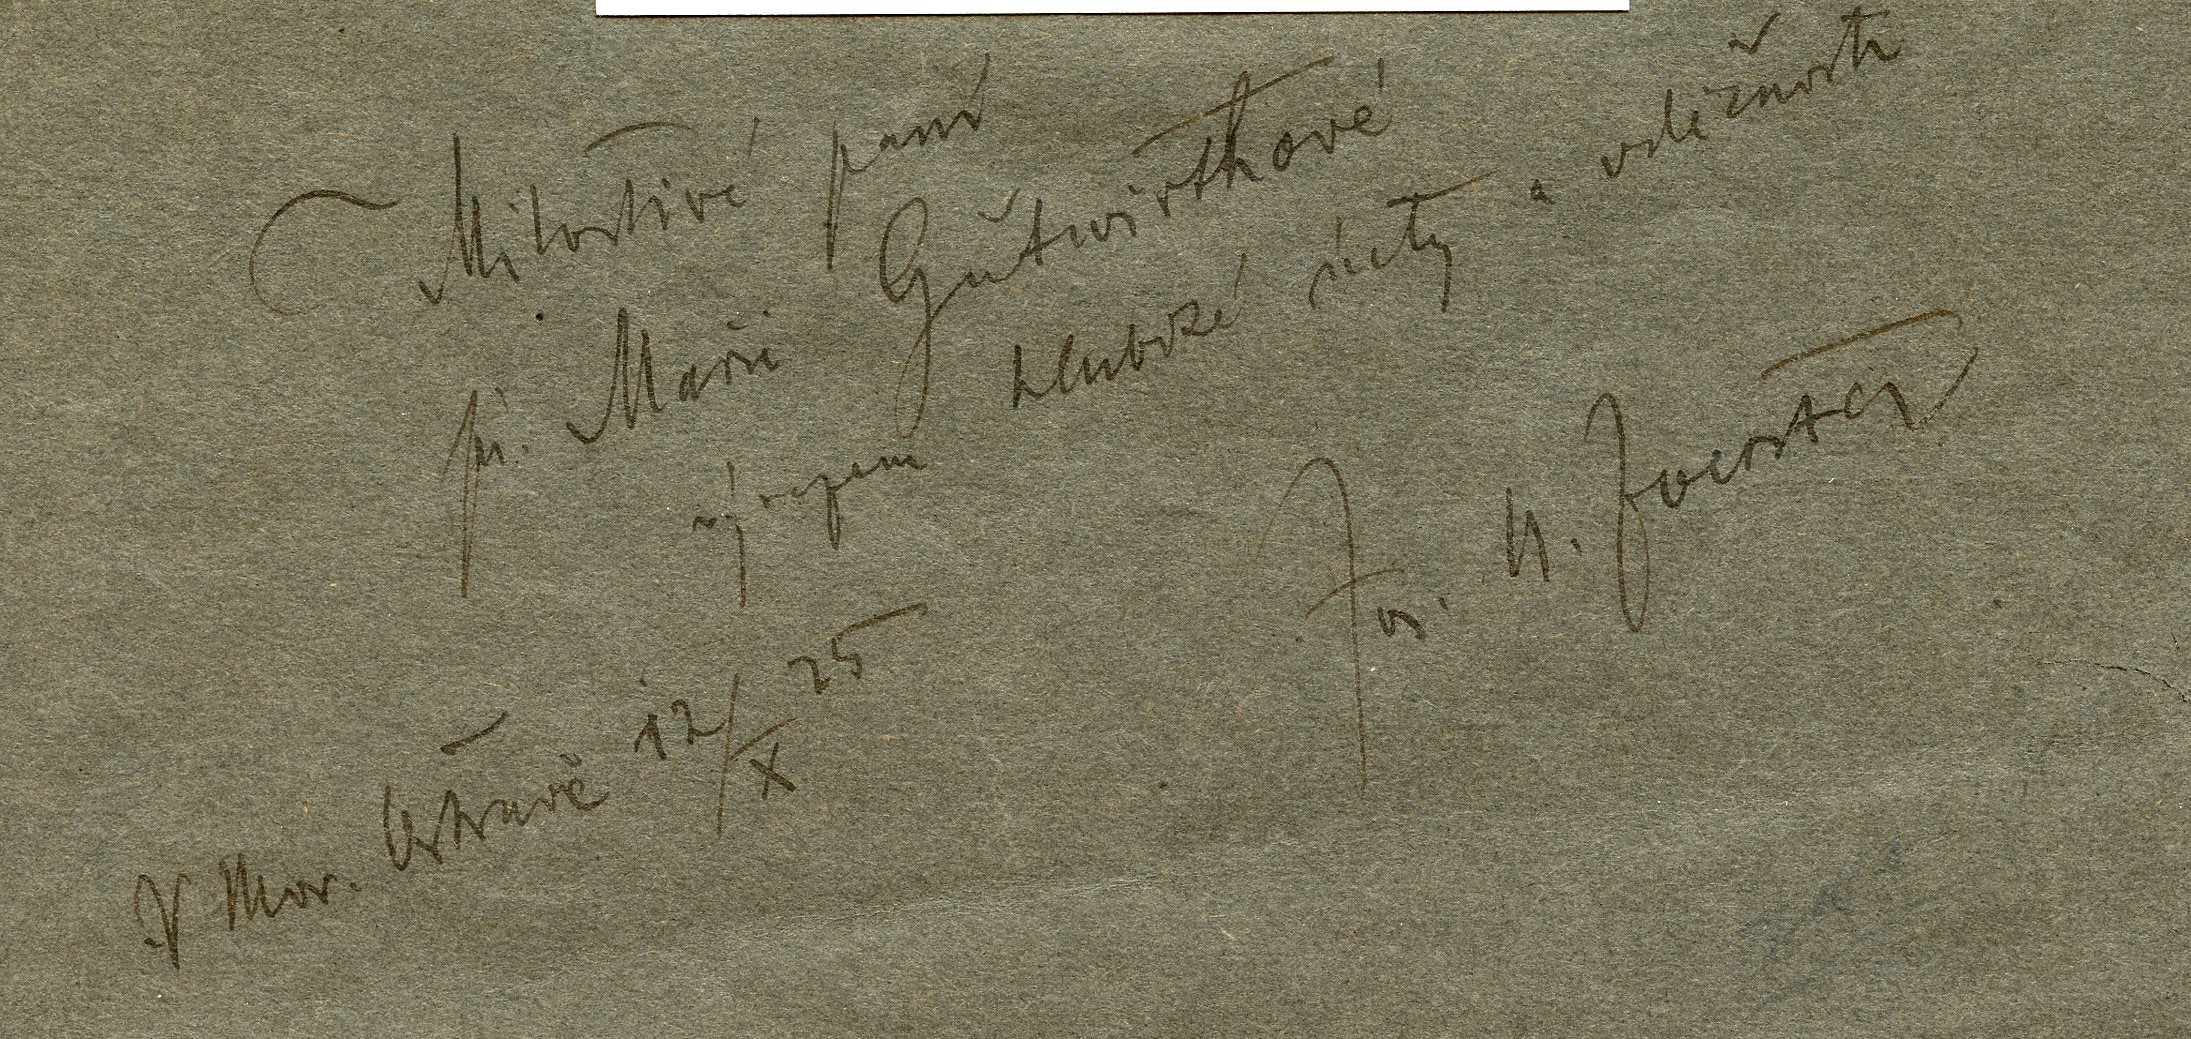 Milostivé paní
pí. Marii Gutwirthové
výrazem hluboké úcty a vděčnosti
Jos. B. Foerster
V Mor. Ostravě 12/X 25